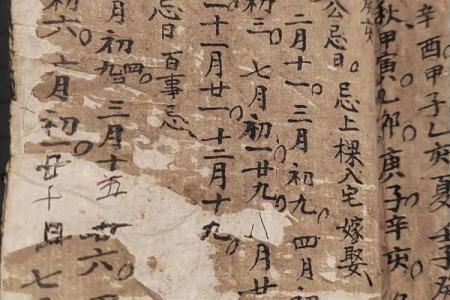 辛酉甲子乙亥夏壬子癸
秋甲寅乙卯。庚子辛亥。
公忌日。忌上樑入宅嫁娶、
二月十一。三月初九。四月初
初三。七月初一廿九。八月廿
十一月廿一。十二月十九。
忌日百事忌、
月初四。初九。三月十五廿六。
初六。月初一廿十日七